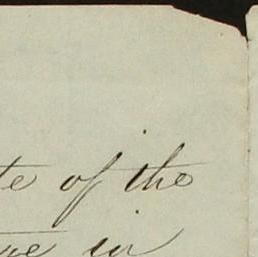 te of the
in